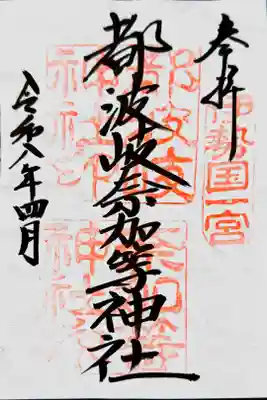 奉拝
伊勢国一宮
都波岐奈加等神社
都波岐
神社
奈加等
神社
令和八年四月